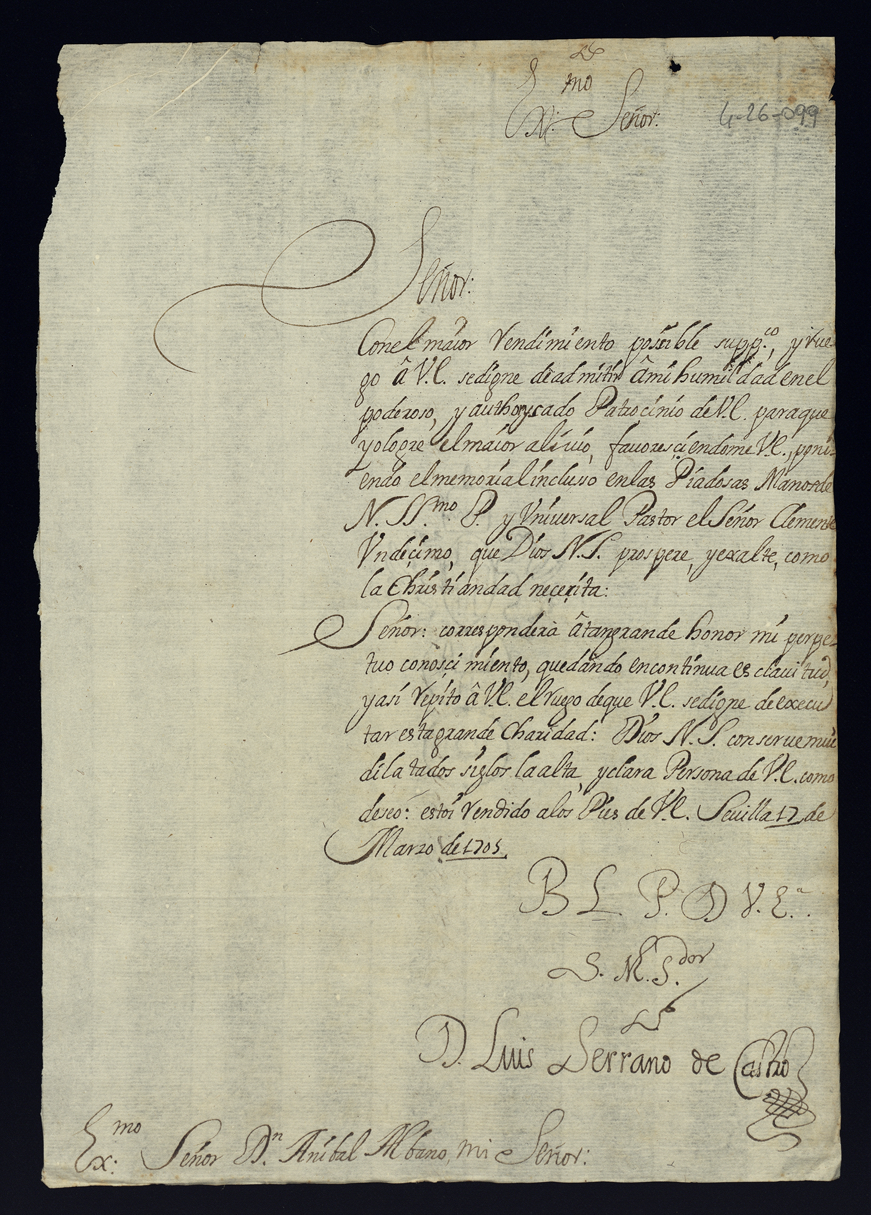 Ex:mo Señor:
4-26-099
Señor:
Con el maior rendimiento posible suppco, y rue-
go â V.E. se digne de admitir â mi humildad en el
poderoso, y authorysado Patrocinio de V.E. para que
yo logre el maior alivio, favoresçiendome V.E., poni-
endo el memorial incluso en las Piadosas Manos de
N. SSmo P. y Vniversal Pastor el Señor Clemente
Vndeçimo, que Dios N. S. prospere, y exalte, como
la Christiandad neçesita:
Señor: corresponderà â tan grande honor mi perpe-
tuo conosçimiento, quedando en continua esclauitud,
y asi repito â V.E. el ruego de que V.E. se digne de execu
tar esta grande Charidad: Dios N. S. conserve mui
dilatados siglos la alta, y clara Persona de V.E. como
deseo: estoi rendido a los Pies de V.E. Sevilla 17 de
Marzo de 1705.
B L P. D V. Ea.
S. M. S.dor
D. Luis Serrano de Castro
Ex:mo Señor Dn. Anibal Albano, mi Señor: